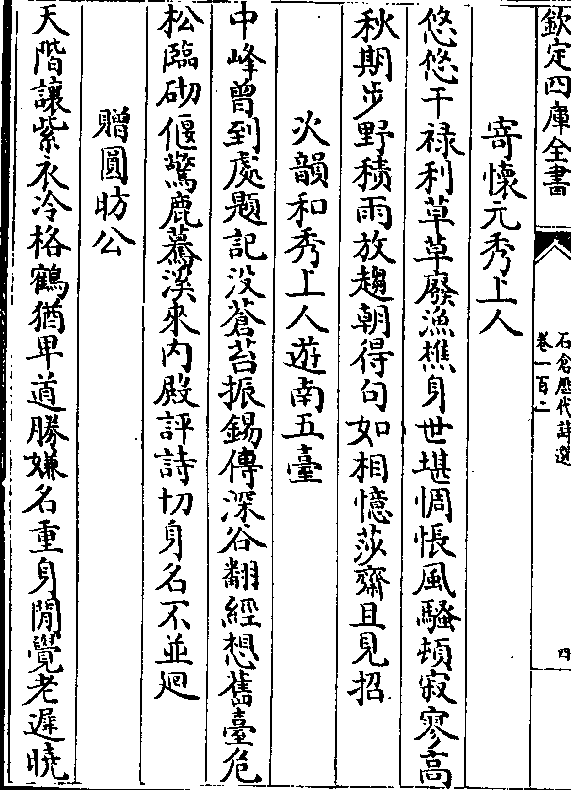 欽定四庫全書
石倉歷代詩選
卷一百二
四
寄懷元秀上人
悠悠干祿利草草廢漁樵身世堪惆悵風騷頓寂寥高
秋期步野積雨放趨朝得句如相憶莎齋且見招
次韻和秀上人遊南五臺
中峰曾到處題記没蒼苔振錫傳深谷翻經想舊臺危
松臨砌偃驚鹿驀溪來内殿評詩切身名不並廻
贈圓昉公
天階讓紫衣冷格鶴猶卑道勝嫌名重身閒覺老遲曉